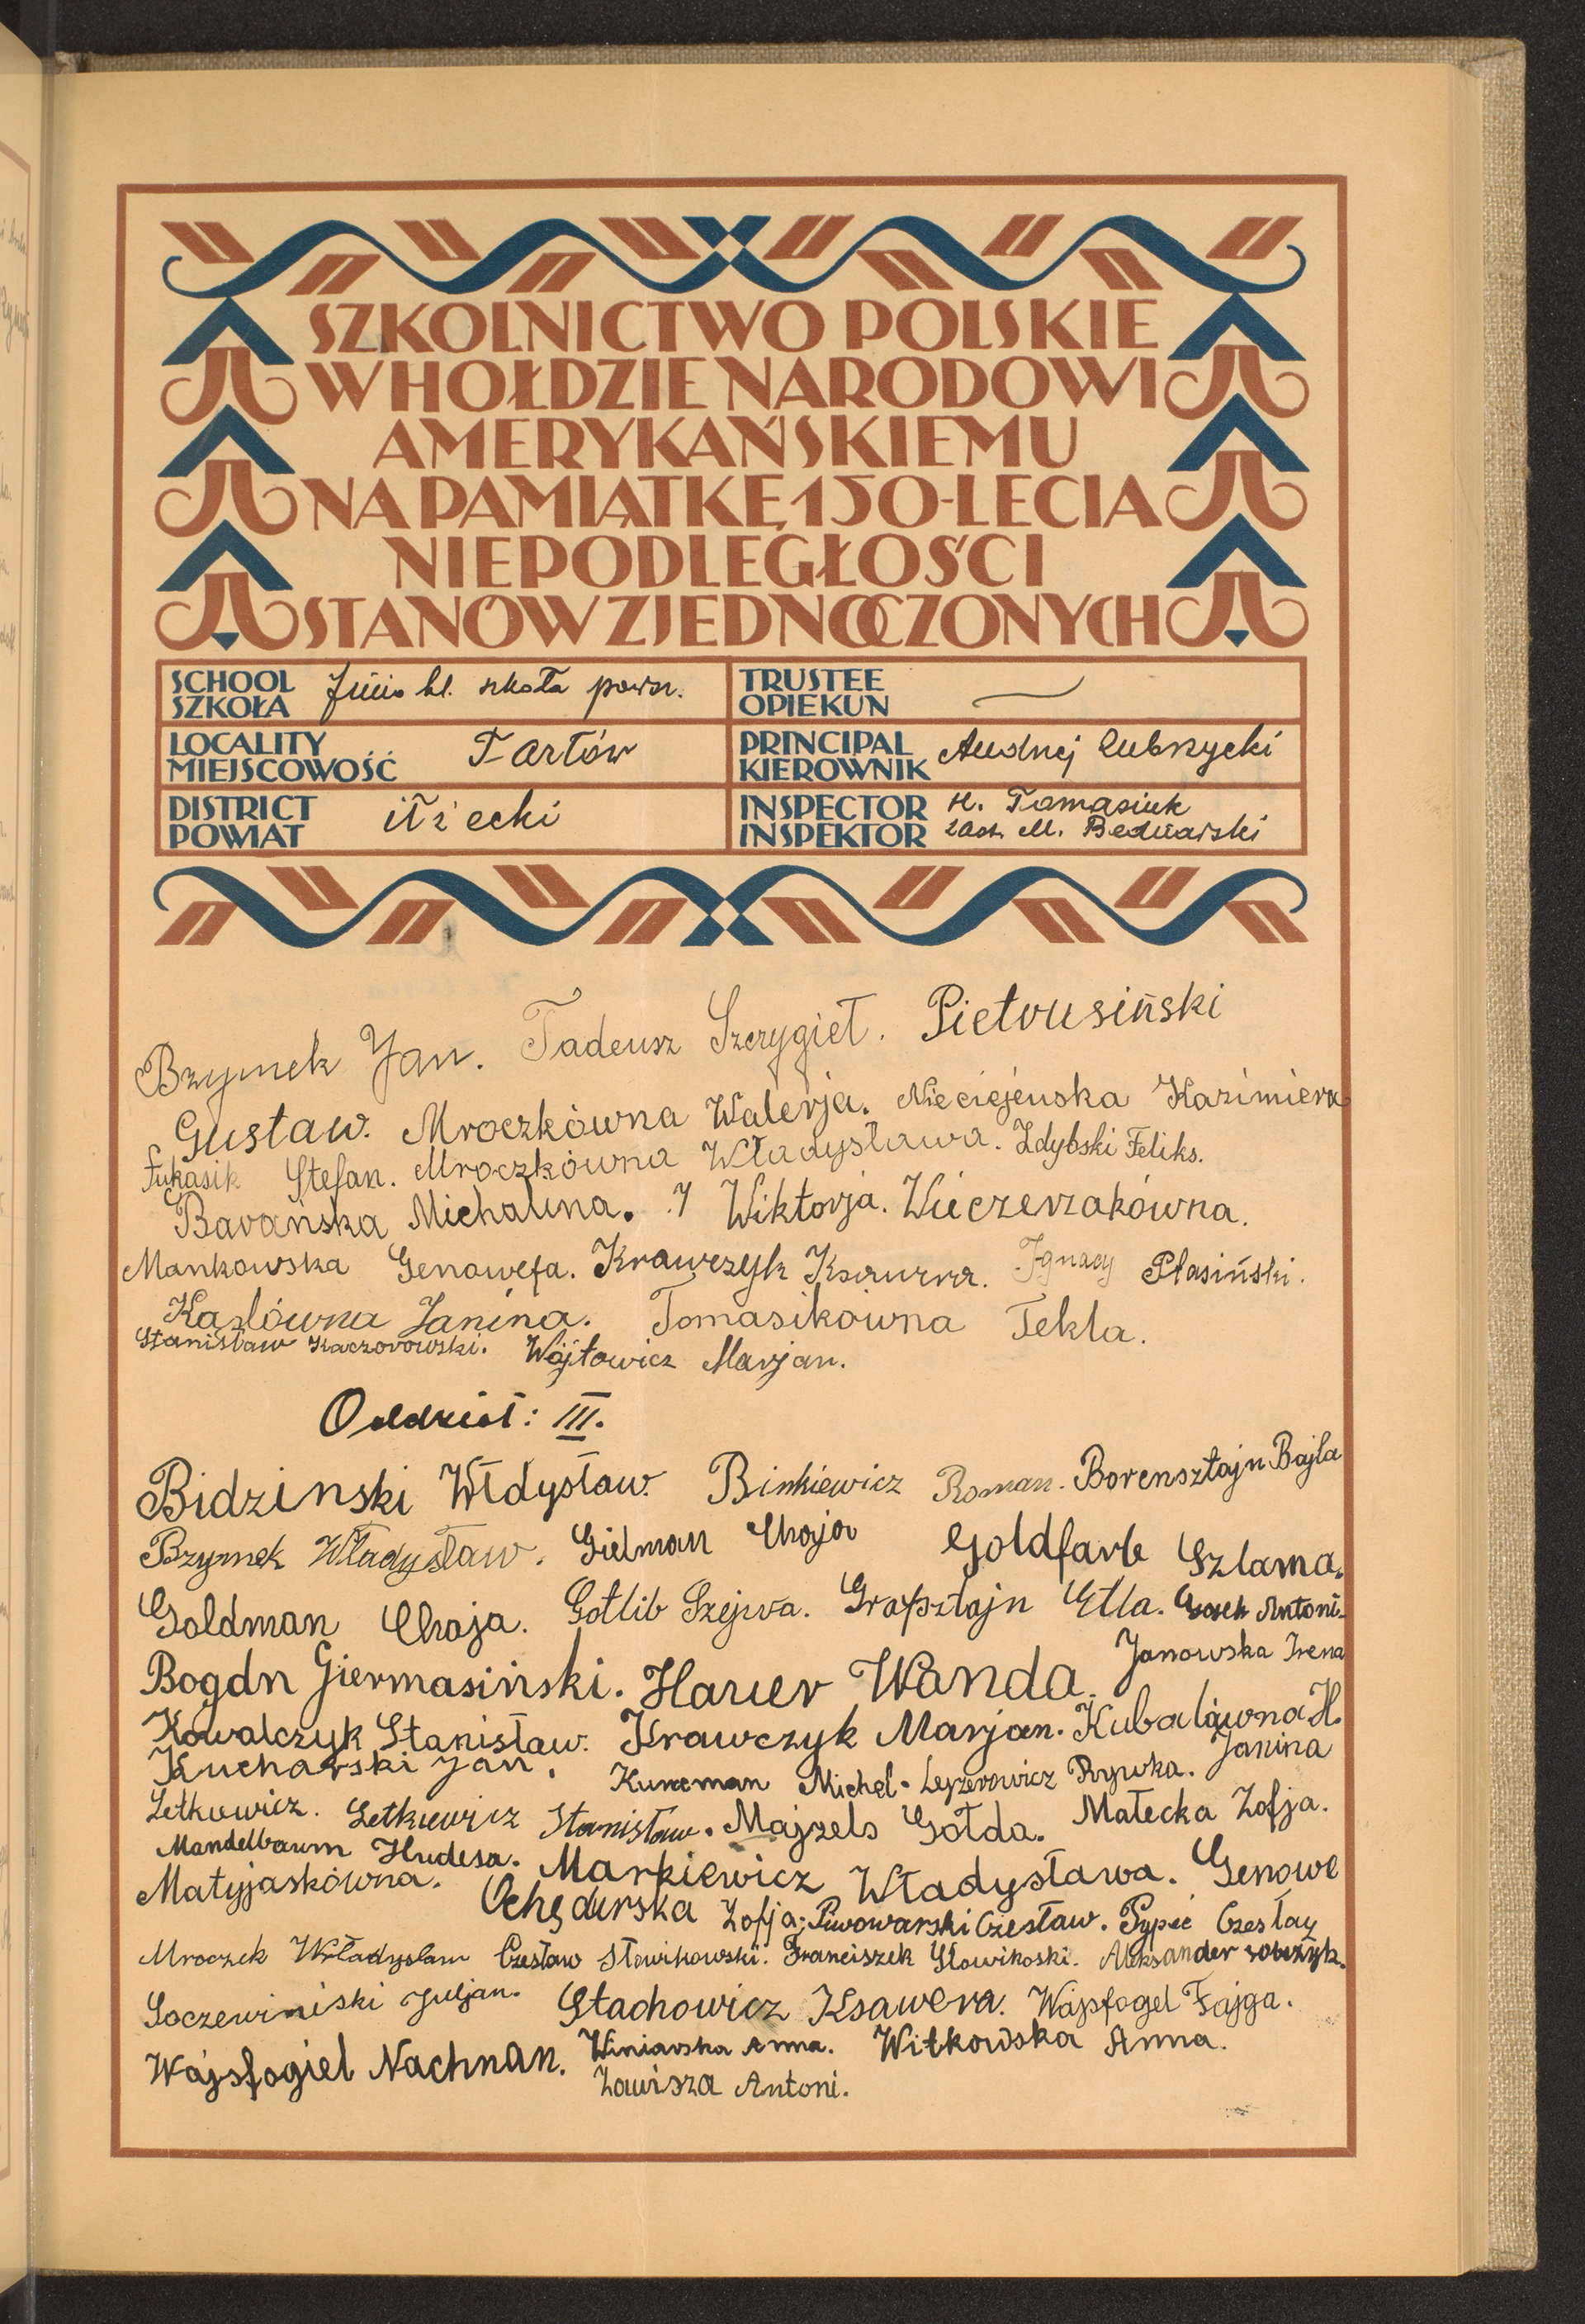 SZKOLNICTWO POLSKIE
W HOŁDZIE NARODOWI
AMERYKAŃSKIEMU
NA PAMIĄTKĘ 150-LECIA
NIEPODLEGŁOŚCI
STANÓW ZJEDNOCZONYCH
SCHOOL
SZKOŁA
kl. szkoła powsz.
TRUSTEE
OPIEKUN
LOCALITY
MIEJSCOWOŚĆ
Tarłów
PRINCIPAL
KIEROWNIK
Andrzej Lubrzycki
DISTRICT
POWIAT
iłżecki
INSPECTOR
INSPEKTOR
Tomasiuk
zast. M. Bednarski
Brzymek Jan. Tadeusz Szczygieł. Pietrusiński
Gustaw. Mroczkówna Walerja. Nieciejewska Kazimiera
Łukasik Stefan. Mroczkówna Władysława. Zdybski Feliks.
Barańska Michalina. Wiktorja. Wieczerzakówna.
Mankowska Genowefa. Krawczyk Ksawera. Ignacy Płasiński.
Kazlówna Janina. Tomasikówna Tekla.
Stanisław Kaczorowski. Wójtowicz Marjan.
Oddział: III.
Bidzinski Włdysław. Binkiewicz Roman. Borensztajn Bajla
Brzymek Władysław. Gielman Chaja Goldfarb Szlama.
Goldman Chaja. Gotlib Szejwa. Grapsztajn Etla. Antoni.
Bogdn Giermasiński. Haruer Wanda. Janowska Irena
Kowalczyk Stanisław. Krawczyk Marjan. Kubalówna H.
Kucharski Jan. Kuncman Michel. Lejzerowicz Rywka. Janina
Letkowicz. Letkiewicz Stanisław. Majzels Gołda. Małecka Zofja.
Mandelbaum Hudesa. Markiewicz Władysława. Genowe
Matyjaskówna. Ochędurska Zofja; Piwowarski Czesław. Pypeć Czesłay
Mroczek Władysław Czesław Słowikowski. Franciszek Słowikoski. Aleksander sobczyk.
Soczewiniski Juljan. Stachowicz Ksawera. Wajsfogel Fajga.
Wajsfogiel Nachnan. Winiarska Anna. Witkowska Anna.
Zawisza Antoni.